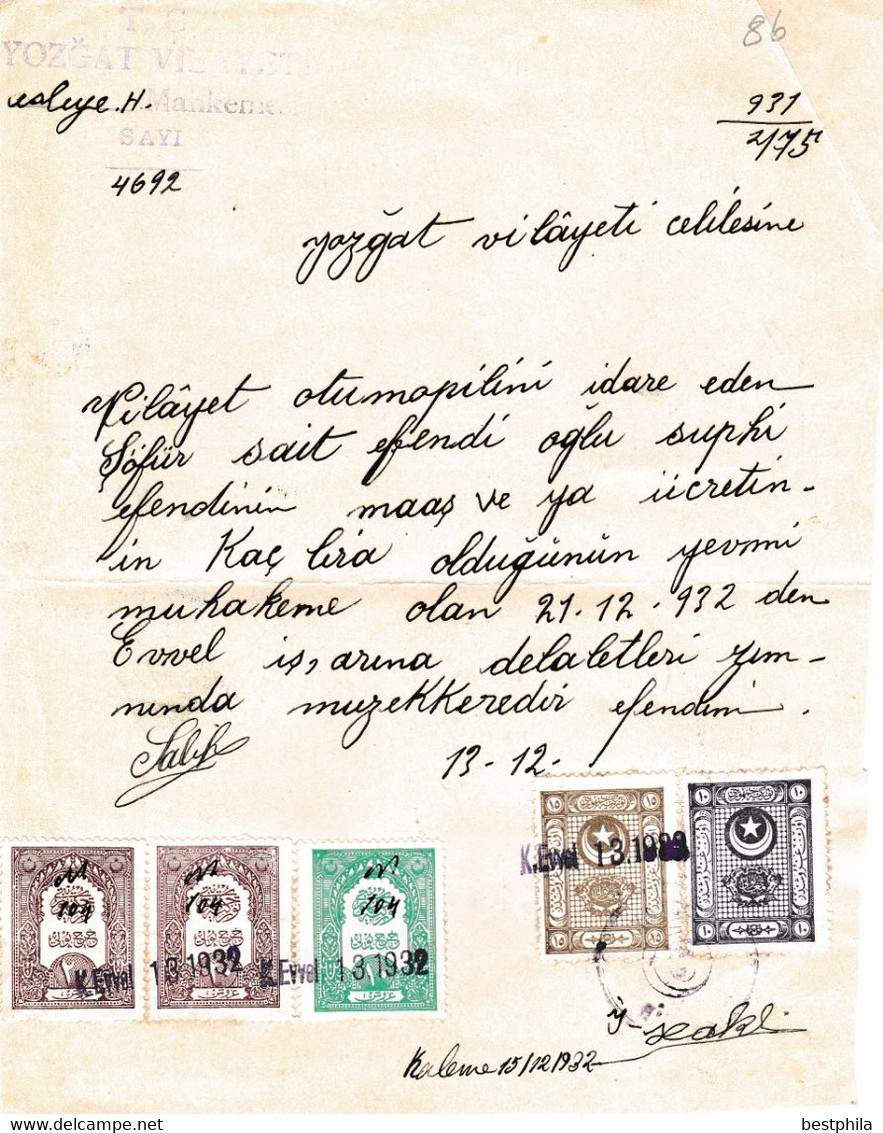 86
T. C.
YOZĞAT VİLAYETİ
asliye. H. Mahkemesi
SAYI
4692
931
2175
yozğat vilâyeti celilesine
Vilâyet otumopilini idare eden
Şöfür sait efendi oğlu suphi
efendinin maaş ve ya ücretin-
in Kaç lira olduğunun yevmi
muhakeme olan 21.12.932 den
Evvel iş,arına delaletleri zım-
nında muzekkeredir efendim.
13-12.
K.Evvel 13.1932
104
104
104
K.Evvel 13 1932
K.Evvel 13 1932
Kaleme 15/12/932
bestphila